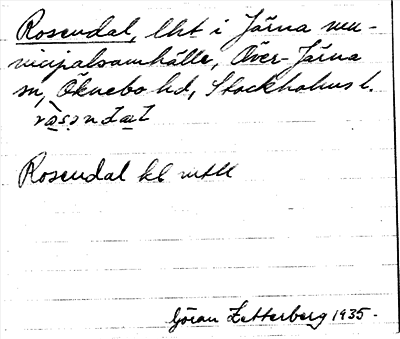 Rosendal, lht i Järna mu-
nicipalsamhälle, Över-Järna
sn, Öknebo hd, Stockholms l.
Rosendal kl mtl
Göran Zetterberg 1935.